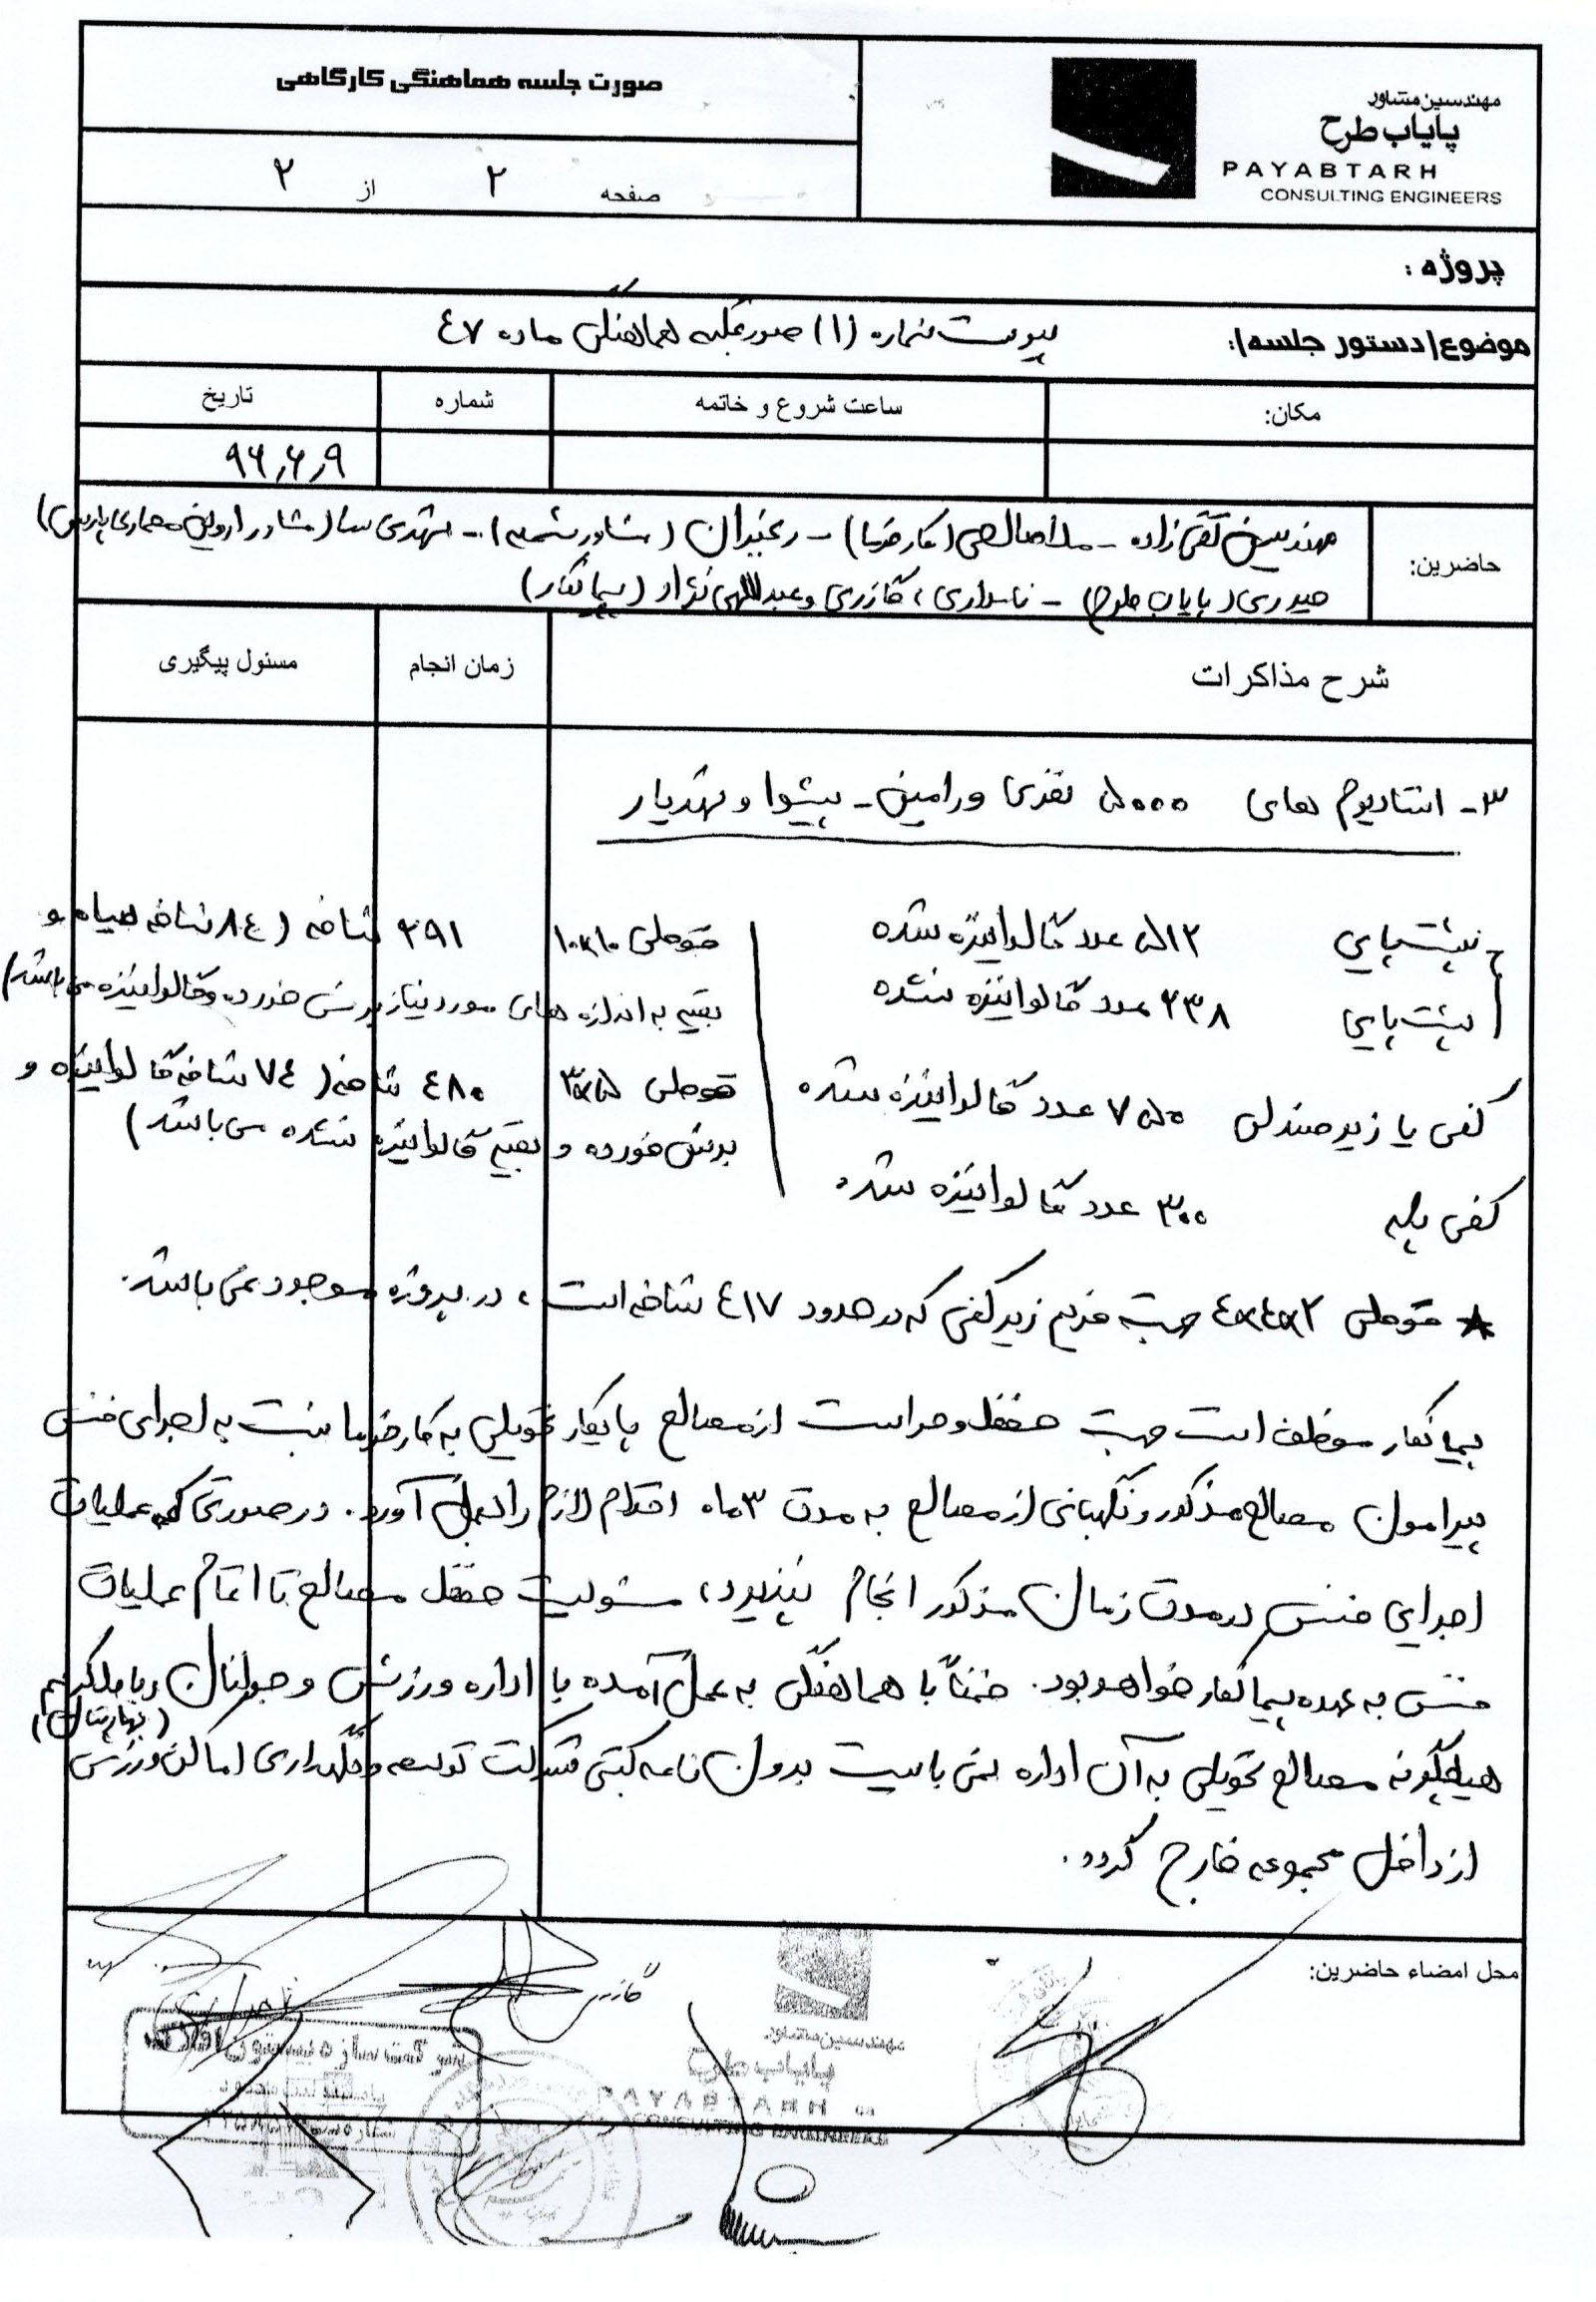 صورت جلسه هماهنگی کارگاهی
مهندسین مشاور
پایاب طرح
PAYABTARH
CONSULTING ENGINEERS
صفحه ۲ از ۲
پروژه :
موضوع(دستور جلسه): پیوست شماره (۱) صورتجلسه هماهنگی ماده ۴۷
مکان: ساعت شروع و خاتمه شماره تاریخ
۹۶٫۶٫۹
حاضرین: مهندسین تقی زاده - ملاصالحی (کارفرما) - رنجبران (مشاور - مهدی سا (مشاور اروین معماری پارس)
حیدری (پایاب طرح) - ، گازری و عبداللهی نژاد (پیمانکار)
شرح مذاکرات زمان انجام مسئول پیگیری
۳- استادیوم های ۵۰۰۰ نفری ورامین - پیشوا و شهریار
پیشت پایی ۵۱۲ عدد گالوانیزه شده
پشت پایی ۲۳۸ عدد گالوانیزه نشده
کفی یا زیر صندلی ۷۵۰ عدد گالوانیزه شده
کفی پله ۳۰۰ عدد گالوانیزه شده
قوطی ۱۰×۱۰ ۲۹۱ شاخه (۸۴ شاخه سیاه و
بقیه به اندازه های مورد نیاز برش خورده و گالوانیزه می باشد)
قوطی ۳×۵ ۴۸۰ شاخه (۷۴ شاخه گالوانیزه و
برش خورده و بقیه گالوانیزه نشده می باشد)
* قوطی ۴×۴×۲ جهت فریم زیر کفی که در حدود ۴۱۷ شاخه است ، در پروژه موجود نمی باشد.
پیمانکار موظف است جهت حفظ و حراست از مصالح پایکار تحویلی به کارفرما نسبت به اجرای فنس
پیرامون مصالح مذکور و نگهبانی از مصالح به مدت ۳ ماه اقدام لازم را بعمل آورد. در صورتی که عملیات
اجرایی فنس در مدت زمان مذکور انجام نپذیرد، مسئولیت حفظ مصالح تا اتمام عملیات
فنس به عهده پیمانکار خواهد بود. ضمناً با هماهنگی به عمل آمده با اداره ورزش و جوانان رباط کریم
(بهارستان)
هیچگونه مصالح تحویلی به آن اداره نمی بایست بدون نامه کتبی شرکت توسعه و نگهداری اماکن ورزشی
از داخل مجموعه خارج گردد.
محل امضاء حاضرین:
گازری
مهندسین مشاور
پایاب طرح
PAYABTARH
CONSULTING ENGINEERS